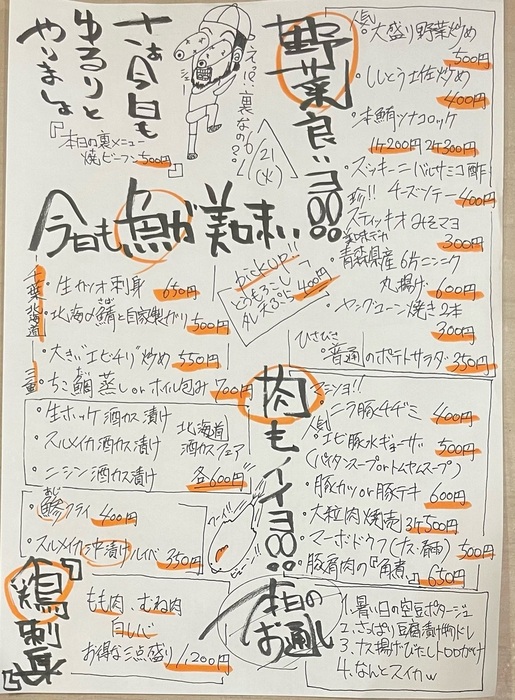 さぁ今日も
ゆるりと
やりましょ
『本日の裏メニュー
焼ビーフン500円』
えっ!?裏なの??
6/21
(水)
野菜良いヨ
人気 大盛り野菜炒め
500円
・ししとう土佐炒め
400円
・本鮪ツナコロッケ
1ケ200円 2ケ300円
・ズッキーニバルサミコ酢
チーズソテー 400円
珍!! スティッキオみそマヨ
300円
・青森県産6片ニンニク
丸揚げ 600円
・ヤングコーン焼き2本
300円
ひさびさ
・普通のポテトサラダ 350円
今日も魚が美味い
pick up!!
とうもろこし
天ぷら 400円
千葉
・生カツオ刺身 650円
北海道
・北海〆鯖と自家製ガリ 500円
・大きいエビチリ炒め 550円
三重
・ちこ鯛蒸しorホイル包み 700円
・生ホッケ酒カス漬け
・スルメイカ酒カス漬け
・ニシン酒カス漬け
北海道
酒カスフェア
各600円
・鯵フライ 400円
あじ
・スルメイカ沖漬けルイベ 350円
肉もイイヨ
マシッソヨ!!
・ニラ豚チヂミ 400円
人気
・エビ豚水ギョーザ 500円
(パイタンスープorトムヤムスープ)
・豚カツor豚テキ 600円
・大粒肉焼売 3ケ500円
・マーボードウフ(ナス・春雨) 500円
・豚肩肉の『角煮』 650円
『鶏刺身』
もも肉、むね肉
白レバー
お得な三点盛り1,200円
本日の
お通し
1. 暑い日の空豆ポタージュ
2. さっぱり豆腐漬け物ドレ
3. ナス揚げびたしトロロがけ
4. なんとスイカw